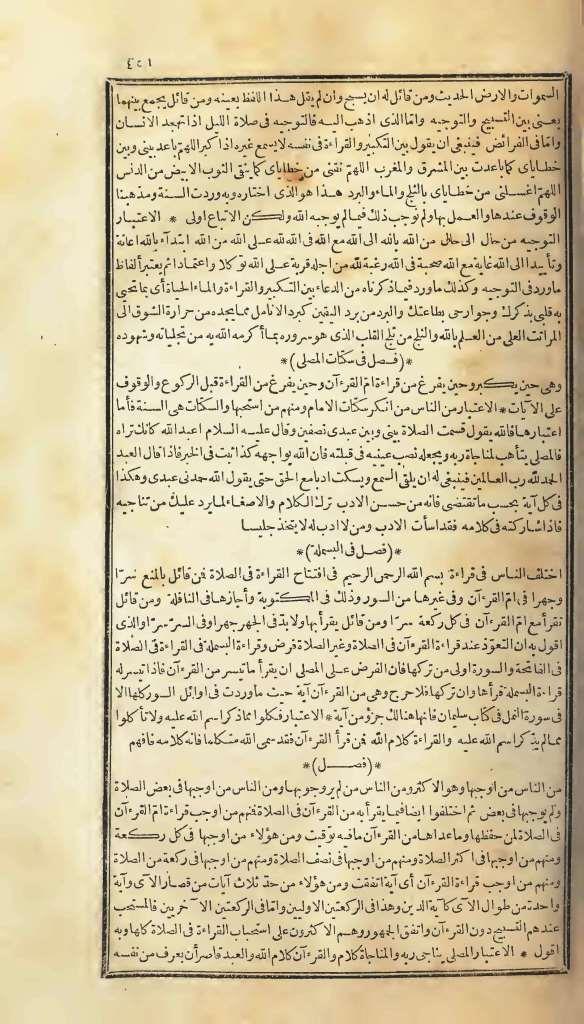 ٤٢١
السموات والارض الحديث ومن قائل له ان يسبح وان لم يقل هذا اللفظ بعينه ومن قائل يجمع بينهما
يعنى بين التسبيح والتوجيه وامّا الذى اذهب اليه فالتوجيه فى صلاة الليل اذا تهجد الانسان
وامّا فى الفرائض فينبغى ان يقول بين التكبير والقراءة فى نفسه لا يسمع غيره اذا كبر اللهمّ باعد بينى وبين
خطاياى كما باعدت بين المشرق والمغرب اللهمّ نقنى من خطاياى كما ينقى الثوب الابيض من الدنس
اللهمّ اغسلنى من خطاياى بالثلج والماء والبرد هذا هو الذى اختاره وبه وردت السنة ومذهبنا
الوقوف عندها والعمل بها ولم نوجب ذلك فيما لم يوجبه الله ولكن الاتباع اولى * الاعتبار
التوجيه من حال الى حال من الله بالله الى الله مع الله فى الله لله على الله من الله ابتدآء بالله اعانة
وتأييدا الى الله غاية مع الله صحبة فى الله رغبة لله من اجله قربة على الله توكلا واعتمادا ثم يعتبر ألفاظ
ما ورد فى التوجيه وكذلك ما ورد فيما ذكرناه من الدعاء بين التكبير والقراءة والماء الحياة أى بما تحيى
به قلبى بذكرك وجوارحى بطاعتك والبرد من برد اليقين كبرد الانامل مما يجده من حرارة الشوق الى
المراتب العلى من العلم بالله والثلج من ثلج القلب الذى هو سروره بما أكرمه الله به من تجلياته وشهوده
*(فصل فى سكتات المصلى)*
وهى حين يكبر وحين يفرغ من قراءة امّ القرءآن وحين يفرغ من القراءة قبل الركوع والوقوف
على الآيات * الاعتبار من الناس من انكر سكتات الامام ومنهم من استحبها والسكتات هى السنة فأما
اعتبارها فالله يقول قسمت الصلاة بينى وبين عبدى نصفين وقال عليه السلام اعبد الله كانك تراه
فالمصلى يتأهب لمناجاة ربه ويجعله نصب عينيه فى قبلته فان الله يواجهه كذا ثبت فى الخبر فاذا قال العبد
الحمد لله رب العالمين فينبغى له ان يلقى السمع ويسكت ادبا مع الحق حتى يقول الله حمدنى عبدى وهكذا
فى كل آية بحسب ما تقتضى فانه من حسن الادب ترك الكلام والاصغاء لما يرد عليك من تناجيه
فاذا شاركته فى كلامه فقد اسأت الادب ومن لا ادب له لا يتخذ جليسا
*(فصل فى البسملة)*
اختلف الناس فى قراءة بسم الله الرحمن الرحيم فى افتتاح القراءة فى الصلاة فمن قائل بالمنع سرّا
وجهرا فى امّ القرءآن وفى غيرها من السور وذلك فى المكتوبة وأجازها فى النافلة ومن قائل
تقرأ مع امّ القرءآن فى كل ركعة سرّا ومن قائل يقرأ بها ولابدّ فى الجهر جهرا وفى السرّ سرّا والذى
اقول به ان التعوّذ عند قراءة القرءآن فى الصلاة وغير الصلاة فرض وقراءة البسملة فى القراءة فى الصلاة
فى الفاتحة والسورة اولى من تركها فان الفرض على المصلى ان يقرأ ما تيسر من القرءآن فاذا تيسر له
قراءة البسملة قرأها وان تركها فلا حرج وهى من القرءآن آية حيث ما وردت فى اوائل السور كلها الا
فى سورة النمل فى كتاب سليمان فانها هنالك جزء من آية * الاعتبار فكلوا مما ذكر اسم الله عليه ولا تأكلوا
مما لم يذكر اسم الله عليه والقراءة كلام الله فمن قرأ القرءآن فقد سمى الله متكلما فانه كلامه فافهم
*(فصل)*
من الناس من اوجبها وهو الاكثر ومن الناس من لم ير وجوبها ومن الناس من اوجبها فى بعض الصلاة
ولم يوجبها فى بعض ثم اختلفوا ايضا فيما يقرأ به من القرءآن فى الصلاة فمنهم من اوجب قراءة امّ القرءآن
فى الصلاة لمن حفظها وما عداها من القرءآن ما فيه توقيت ومن هؤلاء من اوجبها فى كل ركعة
ومنهم من اوجبها فى اكثر الصلاة ومنهم من اوجبها فى نصف الصلاة ومنهم من اوجبها فى ركعة من الصلاة
ومنهم من اوجب قراءة القرءآن أى آية اتفقت ومن هؤلاء من حدّ ثلاث آيات من قصار الآى وآية
واحدة من طوال الآى كآية الدين وهذا فى الركعتين الاوليين وامّا فى الركعتين الآخريين فالمستحب
عندهم التسبيح دون القرءآن واتفق الجمهور وهم الاكثرون على استحباب القراءة فى الصلاة كلها وبه
اقول * الاعتبار المصلى يناجى ربه والمناجاة كلام والقرءآن كلام الله والعبد قاصر أن يعرف من نفسه